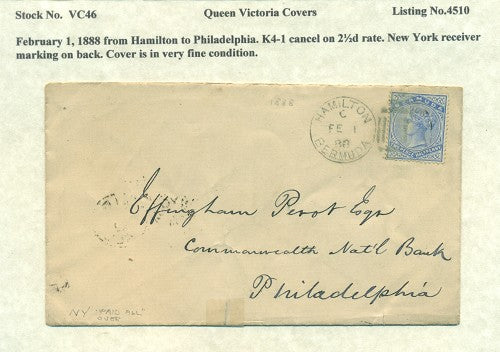 Stock No. VC46 Queen Victoria Covers Listing No.4510
February 1, 1888 from Hamilton to Philadelphia. K4-1 cancel on 2½d rate. New York receiver
marking on back. Cover is in very fine condition.
1888
HAMILTON
C
FE 1
88
BERMUDA
Effingham Perot Esqr
Commonwealth Nat'l Bank
Philadelphia
NY "PAID ALL"
OVER